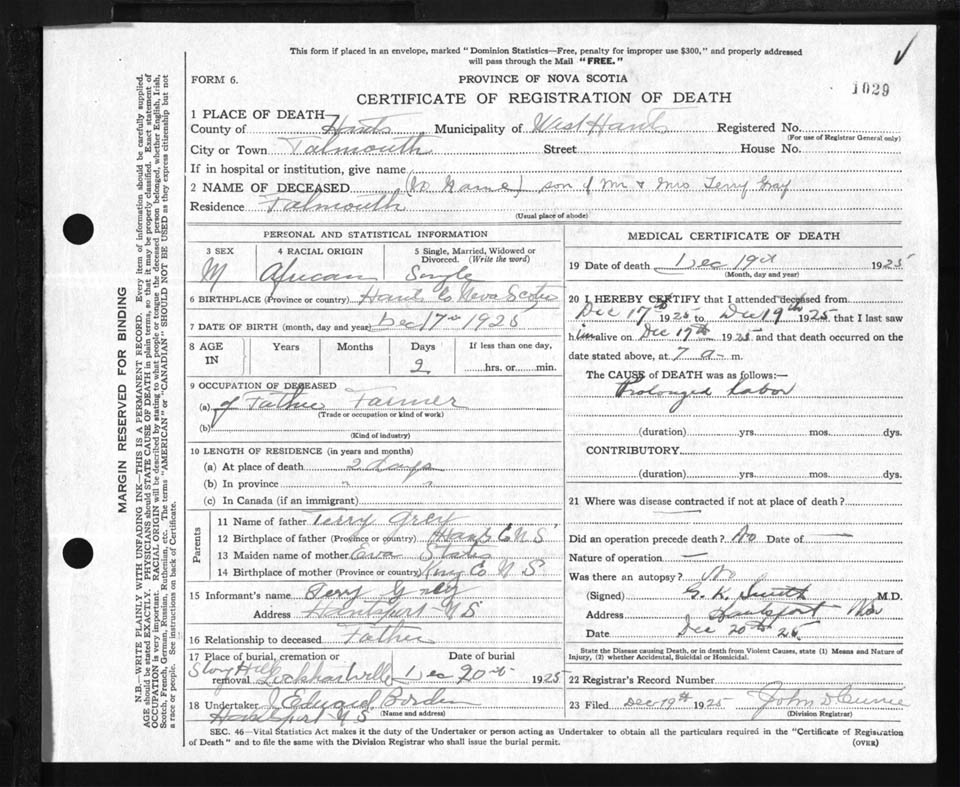 This form if placed in an envelope, marked "Dominion Statistics—Free, penalty for improper use $300," and properly addressed
will pass through the Mail "FREE."
FORM 6.
PROVINCE OF NOVA SCOTIA
1029
CERTIFICATE OF REGISTRATION OF DEATH
1 PLACE OF DEATH
County of Hants Municipality of West Hants Registered No.
(For use of Registrar General only)
City or Town Falmouth Street House No.
If in hospital or institution, give name
2 NAME OF DECEASED (No Name) son of Mr & Mrs Terry Gray
Residence Falmouth
(Usual place of abode)
PERSONAL AND STATISTICAL INFORMATION
3 SEX 4 RACIAL ORIGIN 5 Single, Married, Widowed or
Divorced. (Write the word)
M African Single
6 BIRTHPLACE (Province or country) Hants Co Nova Scotia
7 DATE OF BIRTH (month, day and year) Dec 17th 1925
8 AGE IN Years Months Days If less than one day,
2 hrs. or min.
9 OCCUPATION OF DECEASED
(a) of Father Farmer
(Trade or occupation or kind of work)
(b)
(Kind of industry)
10 LENGTH OF RESIDENCE (in years and months)
(a) At place of death 2 days
(b) In province " "
(c) In Canada (if an immigrant)
Parents
11 Name of father Terry Grey
12 Birthplace of father (Province or country) Hants Co N S
13 Maiden name of mother Eva States
14 Birthplace of mother (Province or country) Kings Co N S
15 Informant's name Perry Grey
Address Hantsport N S
16 Relationship to deceased Father
17 Place of burial, cremation or Date of burial
Stoney Hill
removal Lockhartville Dec 20th 1925
18 Undertaker J Edward Borden
Hantsport N S (Name and address)
MEDICAL CERTIFICATE OF DEATH
19 Date of death Dec 19th 1925
(Month, day and year)
20 I HEREBY CERTIFY that I attended deceased from
Dec 17th 1925 to Dec 19th 1925, that I last saw
him alive on Dec 17th 1925 and that death occurred on the
date stated above, at 7 a m.
The CAUSE of DEATH was as follows:—
Prolonged Labor
(duration) yrs. mos. dys.
CONTRIBUTORY
(duration) yrs. mos. dys.
21 Where was disease contracted if not at place of death?
Did an operation precede death? No Date of —
Nature of operation —
Was there an autopsy? No
(Signed) G. K. Smith M.D.
Address Hantsport
Date Dec 20th 25
State the Disease Causing Death, or in death from Violent Causes, state (1) Means and Nature of
Injury, (2) whether Accidental, Suicidal or Homicidal.
22 Registrar's Record Number
23 Filed Dec 19th 1925 John D Currie
(Division Registrar)
SEC. 46—Vital Statistics Act makes it the duty of the Undertaker or person acting as Undertaker to obtain all the particulars required in the "Certificate of Registration
of Death" and to file the same with the Division Registrar who shall issue the burial permit. (OVER)
MARGIN RESERVED FOR BINDING
N.B.—WRITE PLAINLY WITH UNFADING INK—THIS IS A PERMANENT RECORD. Every item of information should be carefully supplied.
AGE should be stated EXACTLY. PHYSICIANS should STATE CAUSE OF DEATH in plain terms, so that it may be properly classified. Exact statement of
OCCUPATION is very important. RACIAL ORIGIN will be described by stating to what people or tongue the deceased person belonged, whether English, Irish,
Scotch, French, German, Russian, Ruthenian, etc. The terms "AMERICAN" or "CANADIAN" SHOULD NOT BE USED as they express citizenship but not
a race or people. See instructions on back of Certificate.